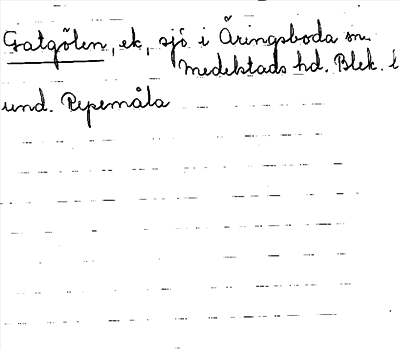 Gatgölen, ek, sjö i Äringsboda sn.
Medelstads hd. Blek. l
und. Pepemåla